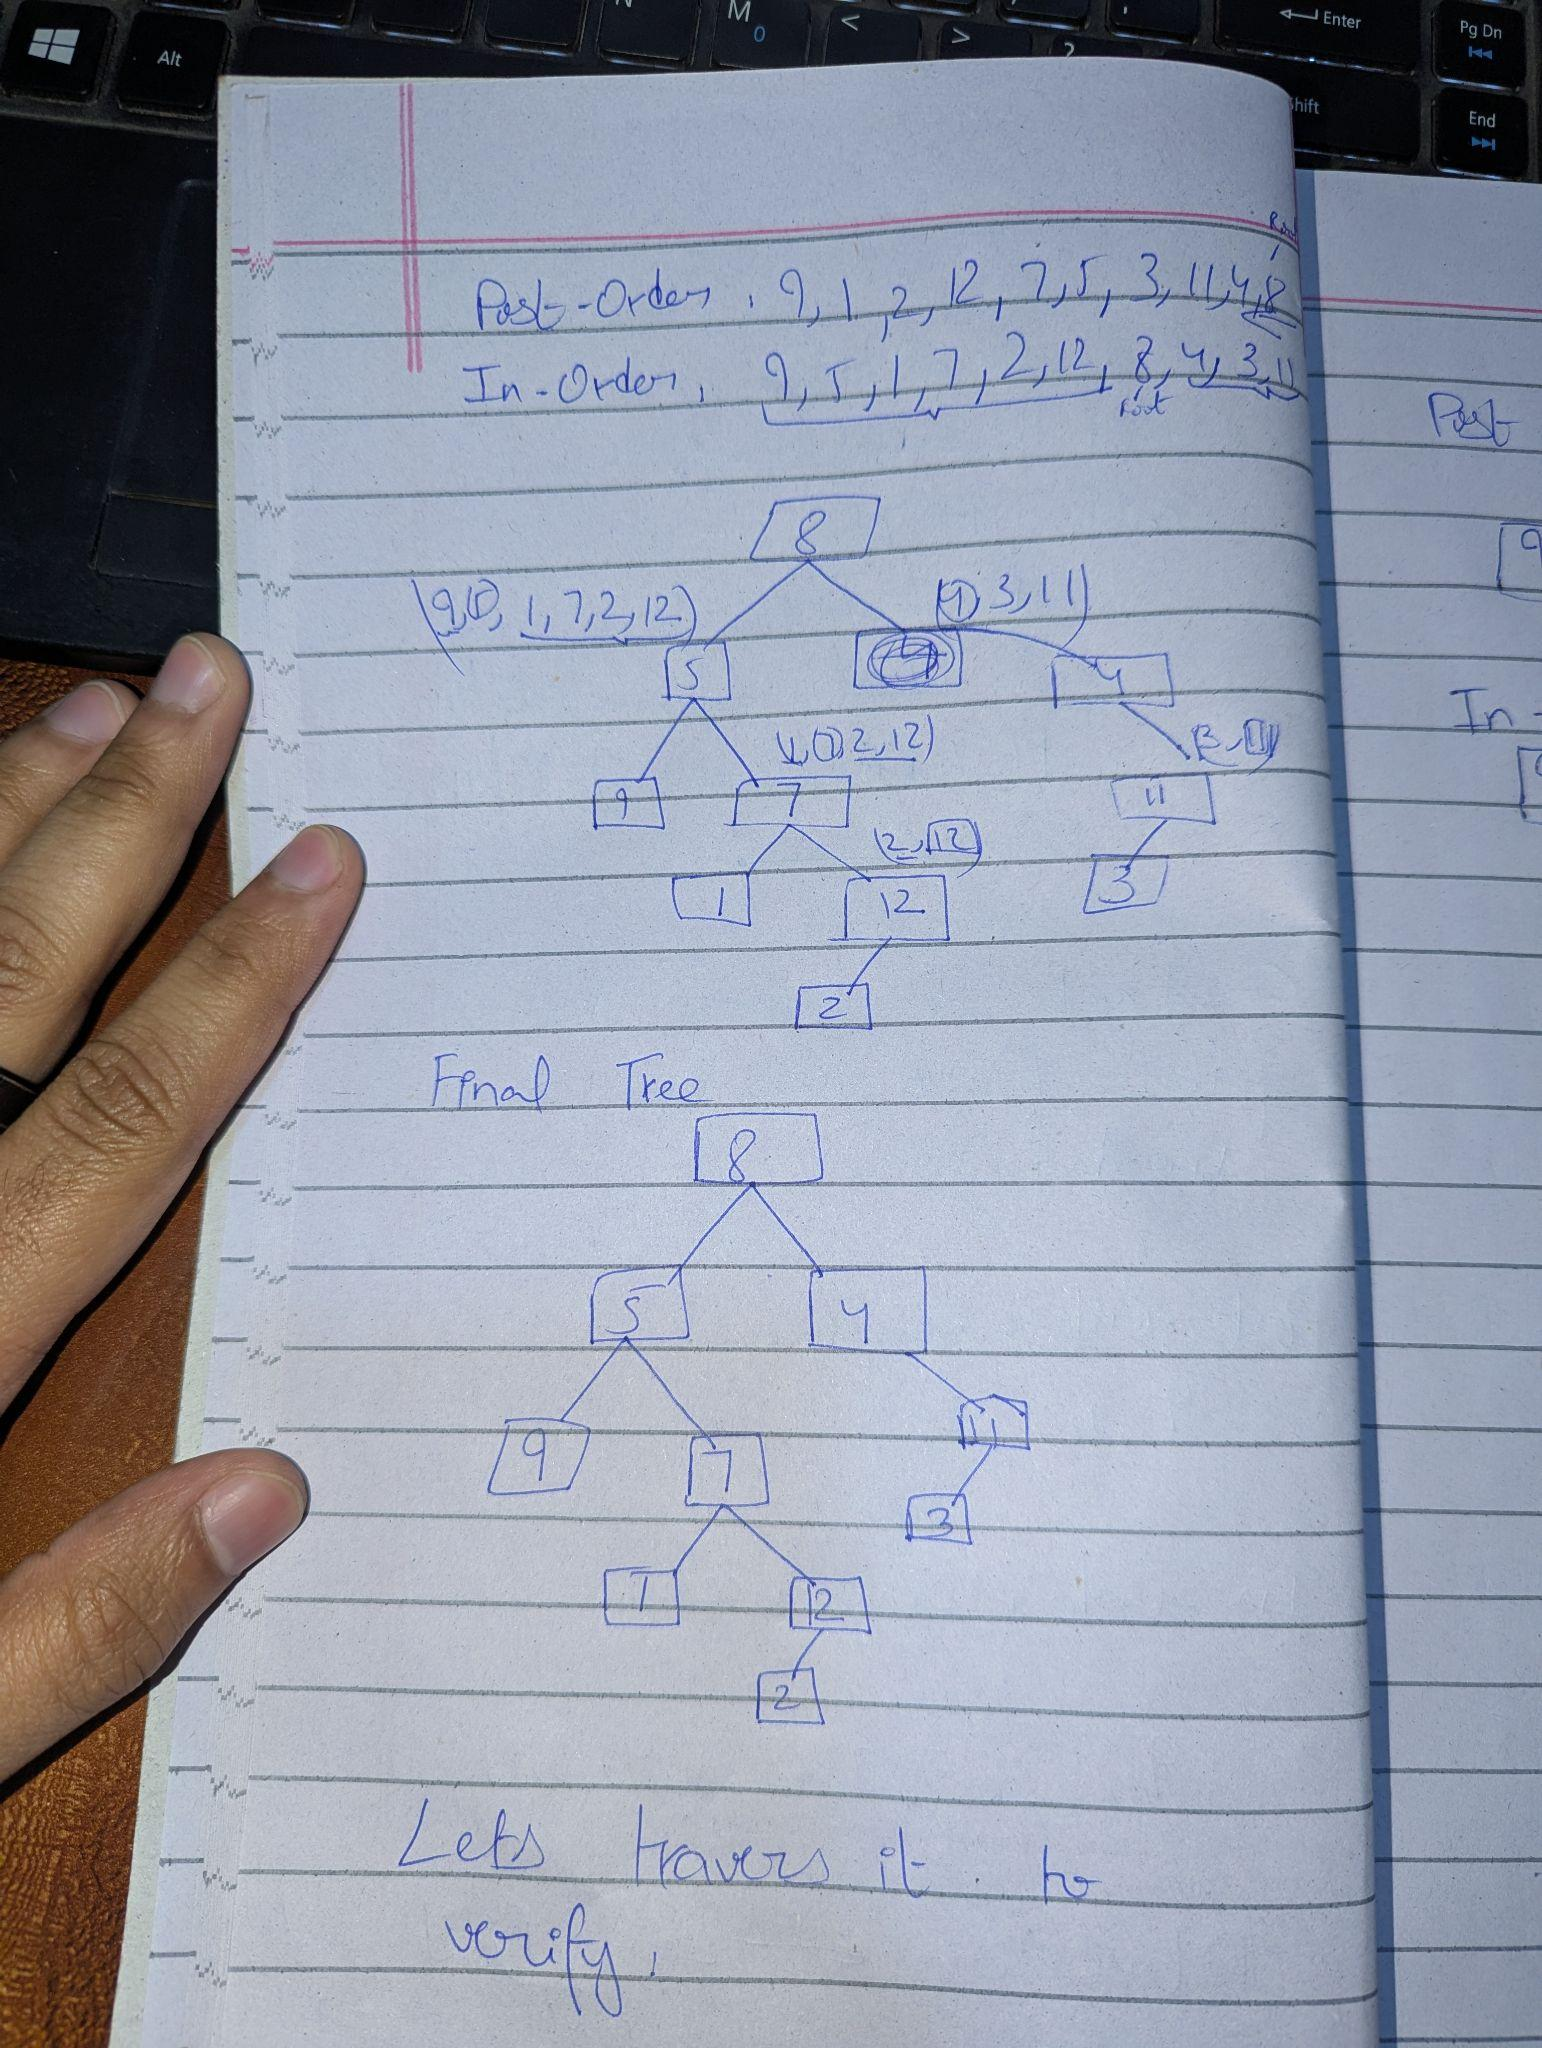 Alt
N
M
0
<
>
?
Enter
Pg Dn
Shift
End
Root
Post-Order, 9, 1, 2, 12, 7, 5, 3, 11, 4, 8
In-Order, 9, 5, 1, 7, 2, 12, 8, 4, 3, 11
root
Post
8
(9, 5, 1, 7, 2, 12)
(4, 3, 11)
5
4
(1, 7, 2, 12)
(3, 11)
In-
9
7
11
(2, 12)
1
12
3
2
Final Tree
8
5
4
9
7
11
3
1
12
2
Lets travers it to
verify.